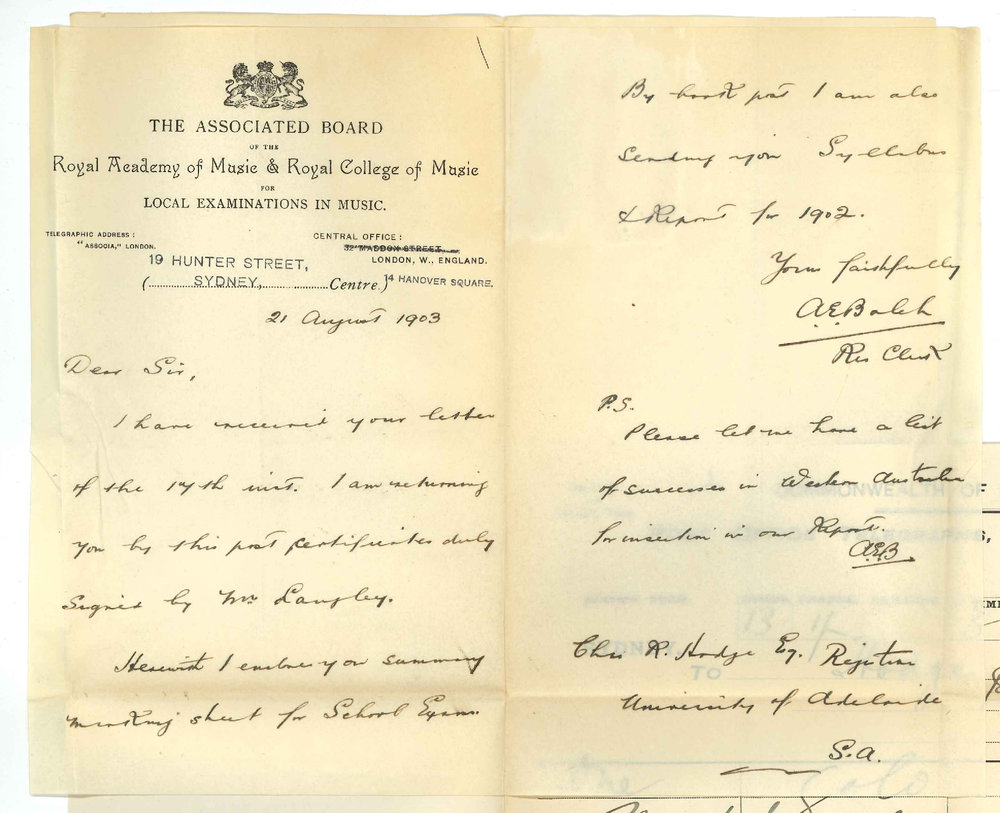 THE ASSOCIATED BOARD
OF THE
Royal Academy of Music & Royal College of Music
FOR
LOCAL EXAMINATIONS IN MUSIC.
TELEGRAPHIC ADDRESS:
"ASSOCIA," LONDON.
CENTRAL OFFICE:
32 MADDOX STREET,
LONDON, W., ENGLAND.
14 HANOVER SQUARE.
19 HUNTER STREET,
(SYDNEY, Centre.)
21 August 1903
Dear Sir,
I have received your letter
of the 17th inst. I am returning
you by this post certificates duly
signed by Mr Langley.
Herewith I enclose you summary
marking sheet for School Exams.
By book post I am also
sending you Syllabus
& Report for 1902.
Yours faithfully
A.E. Balch
Res Clerk
P.S.
Please let me have a list
of successes in Western Australia
for insertion in our Report.
A.E.B.
Chas R. Hodge Esq. Registrar
University of Adelaide
S.A.
COMMONWEALTH OF
TO